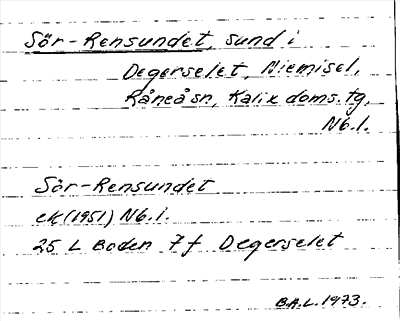 Sör-Rensundet, sund i
Degerselet, Niemisel,
Råneå sn, Kalix doms. tg,
Nb. l.
Sör-Rensundet
ek (1951) Nb. i
25 L Boden 7 f Degerselet
B.A.L. 1973.